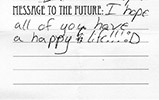 MESSAGE TO THE FUTURE: I hope
all of you have
a happy life!!! :D